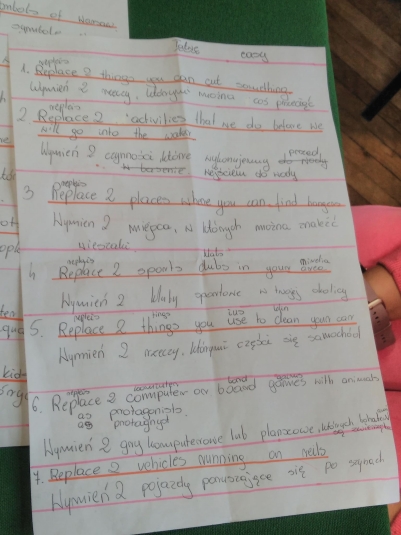 mbols of
easy
replejs
1. Replace 2 things you can cut something
Wymień 2 rzeczy, którymi można coś przeciąć
replejs
2. Replace 2 activities that we do before we
will go into the water
Wymień 2 czynności które wykonujemy przed
wejściem do wody
replejs
3 Replace 2 places where you can find
Wymień 2 miejsca, w których można znaleźć
replejs klubs
4 Replace 2 sports clubs in your area
Wymień 2 kluby sportowe w twojej okolicy
replejs
5. Replace 2 things you use to clean your car
Wymień 2 rzeczy, którymi części się samochód
replejs
6. Replace 2 computer or board games with animals
as protagonists
Wymień 2 gry komputerowe lub planszowe, których
7. Replace 2 vehicles running on rails
Wymień 2 pojazdy poruszające się po szynach